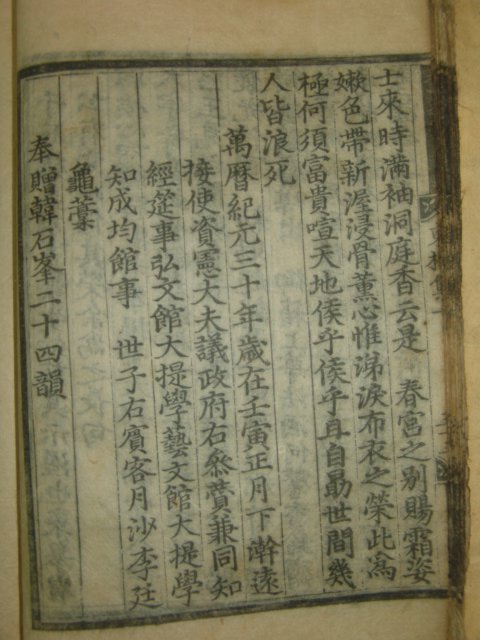 士來時滿袖洞庭香云是　春宮之別賜霜姿
嫩色帶新渥浸骨薰心惟涕淚布衣之榮此爲
極何須富貴喧天地侯乎侯乎且自勗世間幾
人皆浪死
萬曆紀元三十年歲在壬寅正月下澣遠
接使資憲大夫議政府右參贊兼同知
經筵事弘文館大提學藝文館大提學
知成均館事　世子右賓客月沙李廷
龜藁
奉贈韓石峯二十四韻